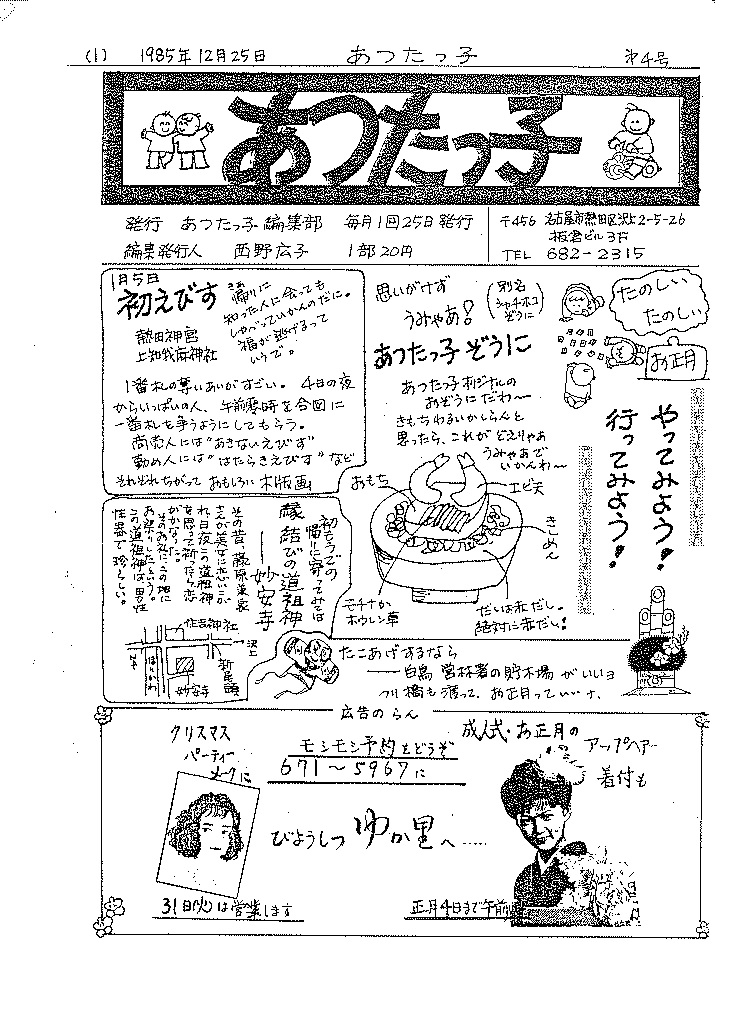 (1) 1985年12月25日 あつたっ子 第4号
あつたっ子
発行 あつたっ子編集部 毎月1回25日発行
編集発行人 西野広子 1部20円
〒456 名古屋市熱田区沢上2-5-26
板倉ビル3F
TEL 682-2315
1月5日
初えびす
熱田神宮
上知我麻神社
帰りに
知った人に会っても
しゃべっていかんのだに。
福が逃げるって
いうで。
1番札の奪いあいがすごい。4日の夜
からいっぱいの人、午前零時を合図に
一番札を争うようにしてもらう。
商売人には"あきないえびす"
勤め人には"はたらきえびす"など
それぞれちがって おもしろい木版画
思いがけず
うみゃあ!
(別名
シャチホコ
ぞうに)
あつたっ子 ぞうに
あつたっ子オリジナルの
おぞうにだわ〜
きもちわるいかしらんと
思ったら、これが どえりゃあ
うみゃあで
いかんわ〜
おもち
エビ天
きしめん
モチナか
ホウレン草
だしは赤だし。
絶対に赤だし!
たのしい
たのしい
お正月
やってみよう!
行ってみよう!
初もうでの
帰りに寄ってみては
縁結びの道祖神
——妙安寺
その昔 藤原兼家
さんが美女に恋いこが
れ、日夜この道祖神
を思って祈ったら恋
がかなった。
そのお礼にこの地に
お祭りしたという。
この道祖神は男性
性器で珍らしい。
住吉神社
沢上
新尾頭
ほりかわ
妙安寺
たこあげするなら
——白鳥 営林署の貯木場 がいいヨ
つり橋も渡って、お正月っていいナ、
広告のらん
クリスマス
パーティー
メークに
モシモシ予約をどうぞ
671〜5967に
成人式・お正月の
アップヘアー
着付も
びようしつ ゆか里へ……
31日(火)は営業します
正月4日まで午前